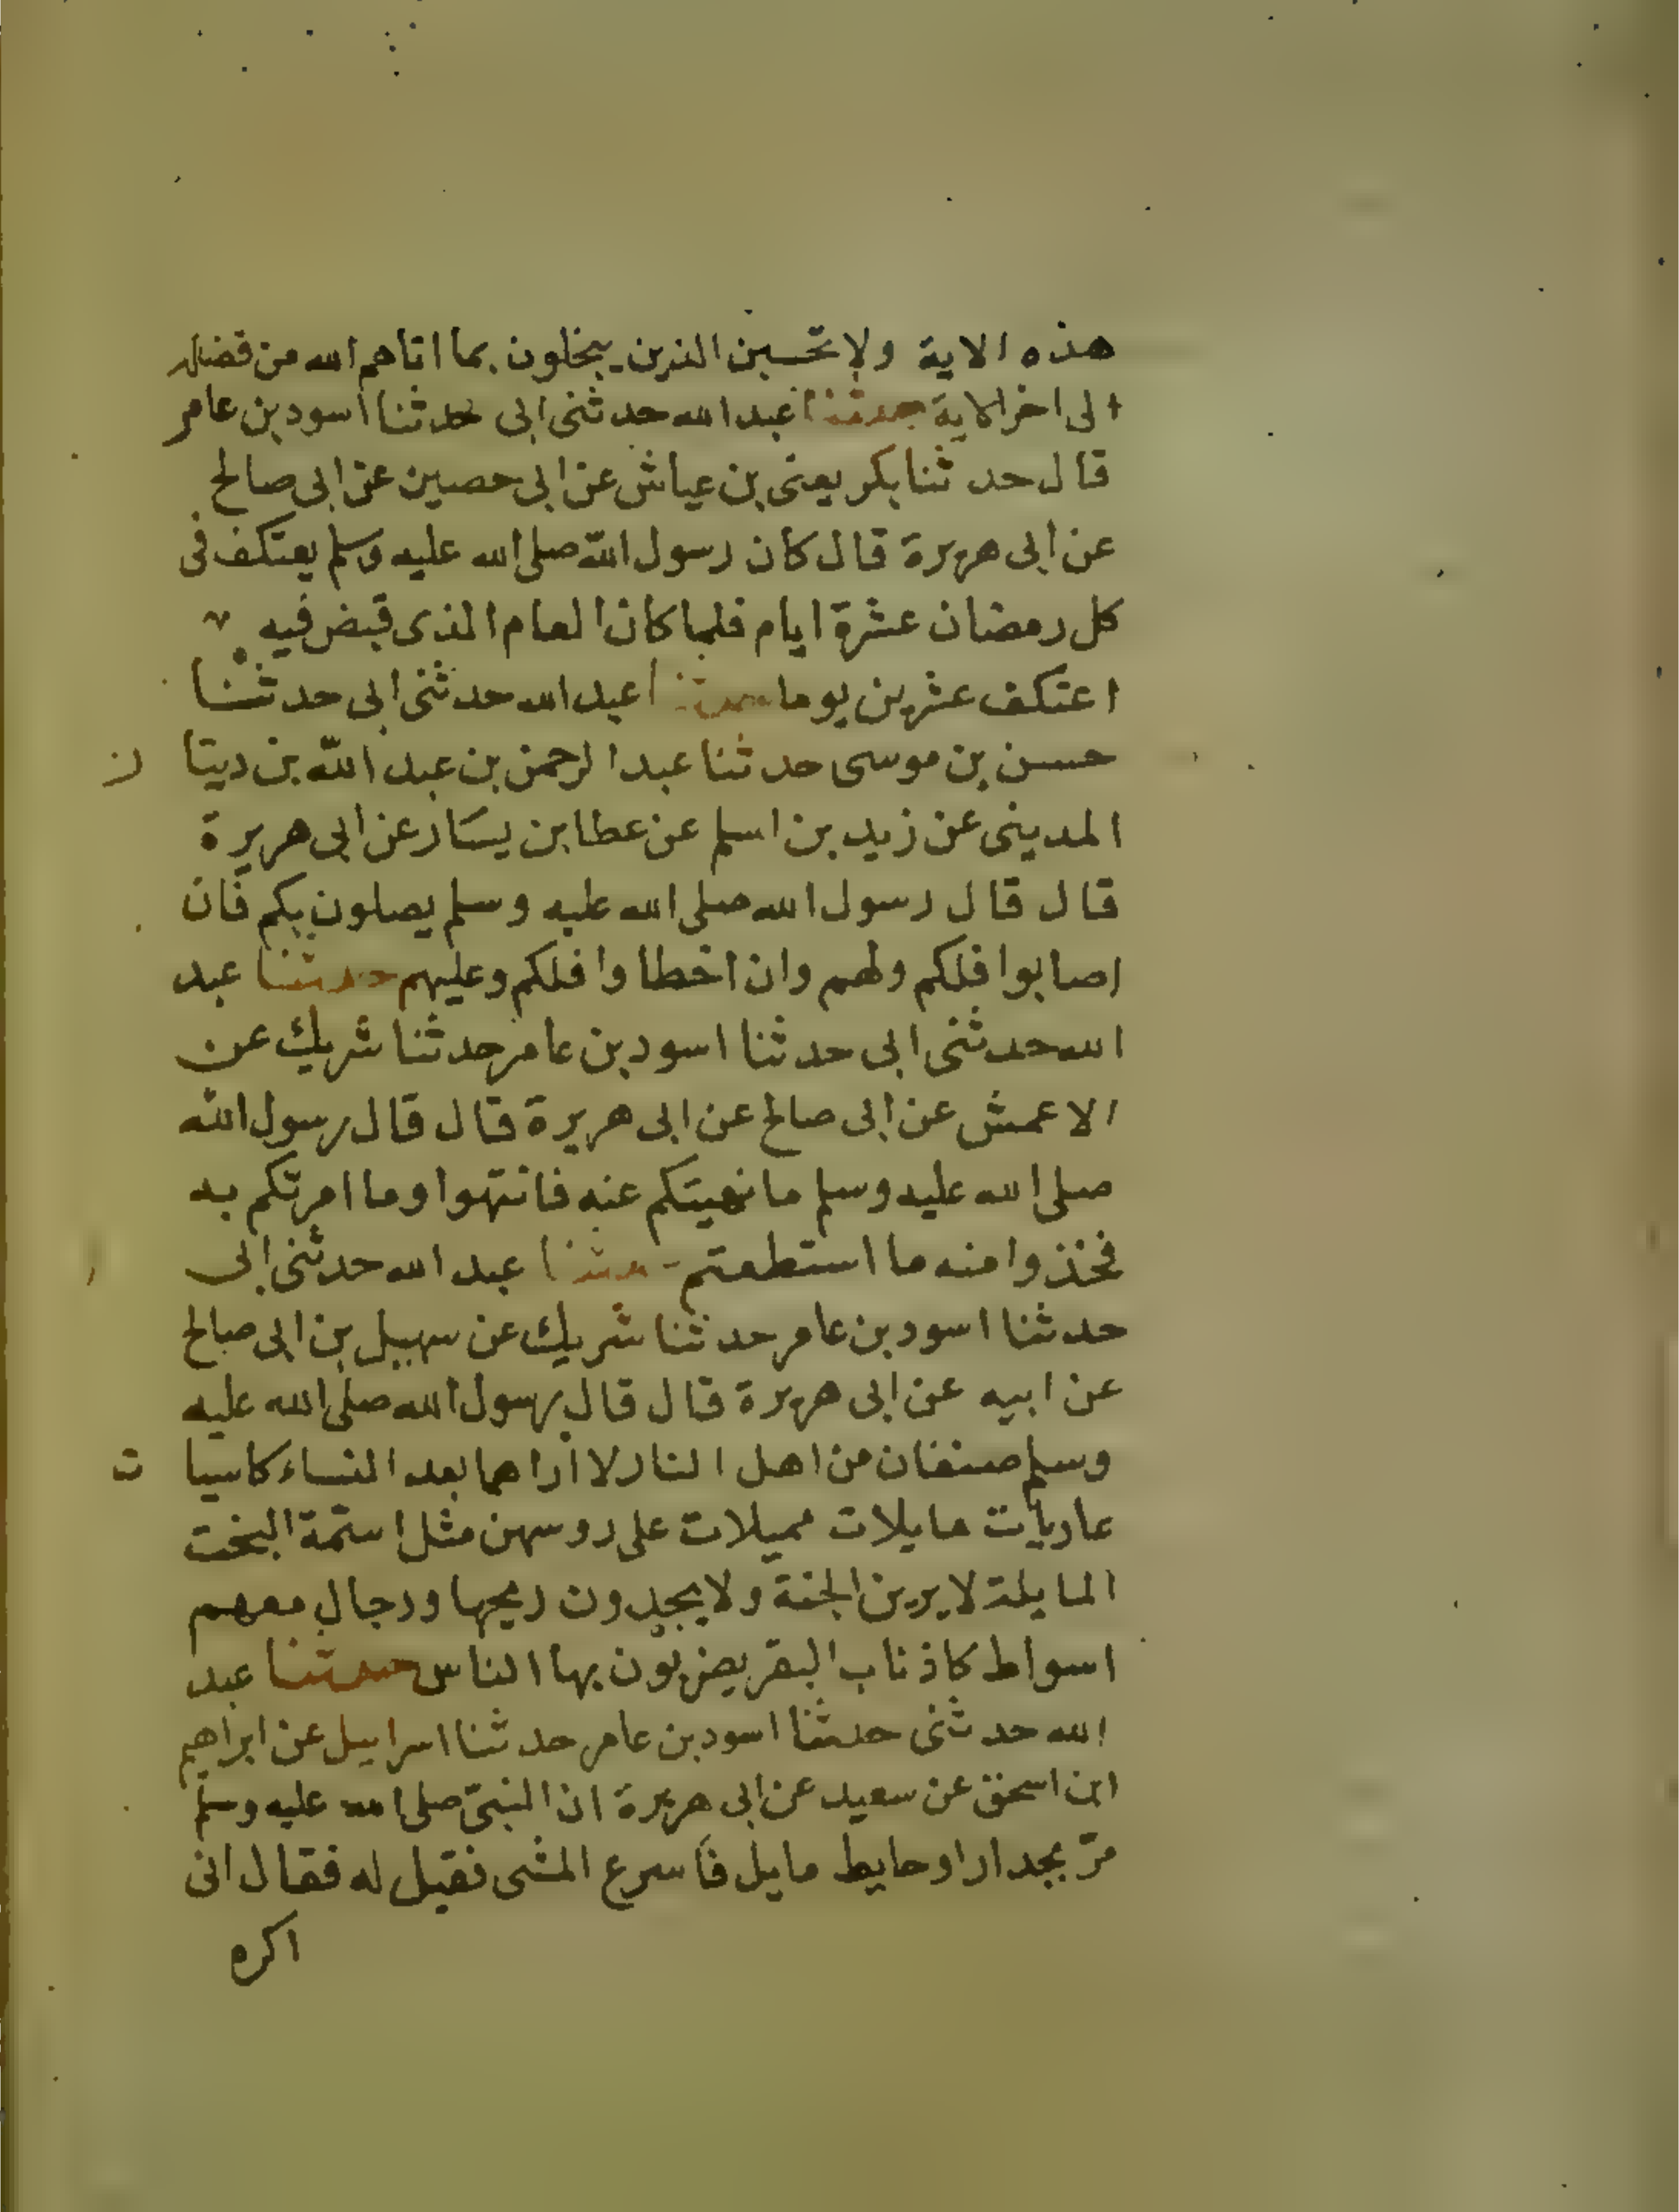 هذه الاية ولا تحسبن الذين يبخلون بما اتاهم الله من فضله
الى اخر الاية حدثنا عبد الله حدثنى ابى حدثنا اسود بن عامر
قال حدثنا بكر يعنى بن عياش عن ابى حصين عن ابى صالح
عن ابى هريرة قال كان رسول الله صلى الله عليه وسلم يعتكف فى
كل رمضان عشرة ايام فلما كان العام الذى قبض فيه
اعتكف عشرين يوما حدثنا عبد الله حدثنى ابى حدثنا
حسن بن موسى حدثنا عبد الرحمن بن عبد الله بن دينا ر
المدينى عن زيد بن اسلم عن عطا بن يسار عن ابى هريرة
قال قال رسول الله صلى الله عليه وسلم يصلون بكم فان
اصابوا فلكم ولهم وان اخطاوا فلكم وعليهم حدثنا عبد
الله حدثنى ابى حدثنا اسود بن عامر حدثنا شريك عن
الاعمش عن ابى صالح عن ابى هريرة قال قال رسول الله
صلى الله عليه وسلم ما نهيتكم عنه فانتهوا وما امرتكم به
فخذوا منه ما استطعتم حدثنا عبد الله حدثنى ابى
حدثنا اسود بن عامر حدثنا شريك عن سهيل بن ابى صالح
عن ابيه عن ابى هريرة قال قال رسول الله صلى الله عليه
وسلم صنفان من اهل النار لا اراهما بعد النساء كاسيا ت
عاريات مايلات مميلات على روسهن مثل اسنمة البخت
المايلة لا يرين الجنة ولا يجدون ريحها ورجال معهم
اسواط كاذناب البقر يضربون بها الناس حدثنا عبد
الله حدثنى حدثنا اسود بن عامر حدثنا اسراييل عن ابراهيم
ابن اسحق عن سعيد عن ابى هريرة ان النبىّ صلى الله عليه وسلم
مرّ بجدار او حايط مايل فاسرع المشى فقيل له فقال انى
اكره